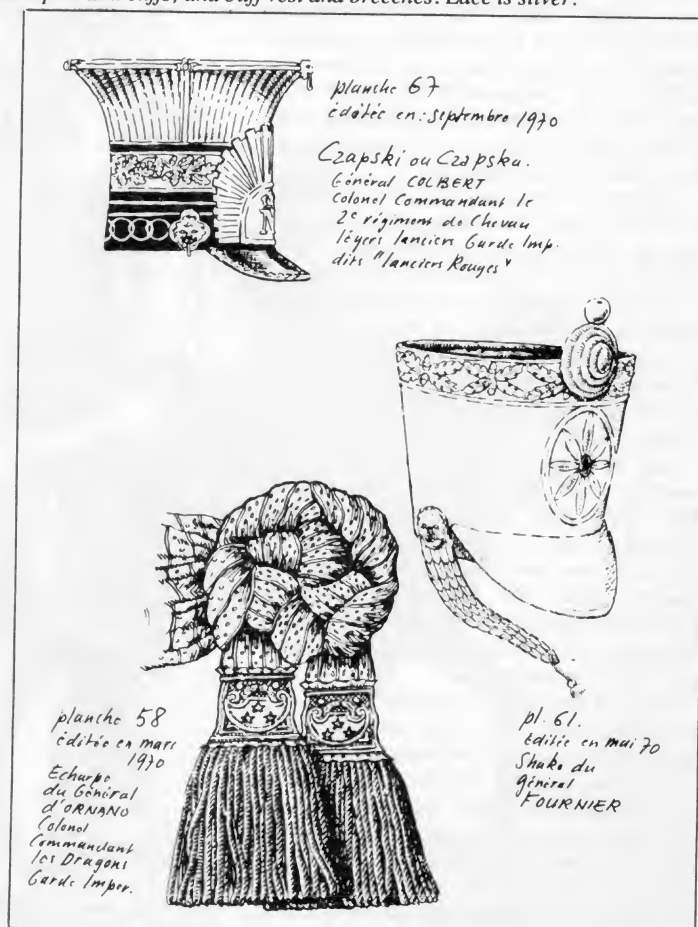 planche 67
éditée en: Septembre 1970
Czapski ou Czapska.
Général COLBERT
Colonel Commandant le
2e régiment de Chevau
légers lanciers Garde Imp.
dits "lanciers Rouges"
planche 58
éditée en mars
1970
Echarpe
du Général
d'ORNANO
Colonel
Commandant
les Dragons
Garde Imper.
pl. 61.
éditée en mai 70
Shako du
général
FOURNIER